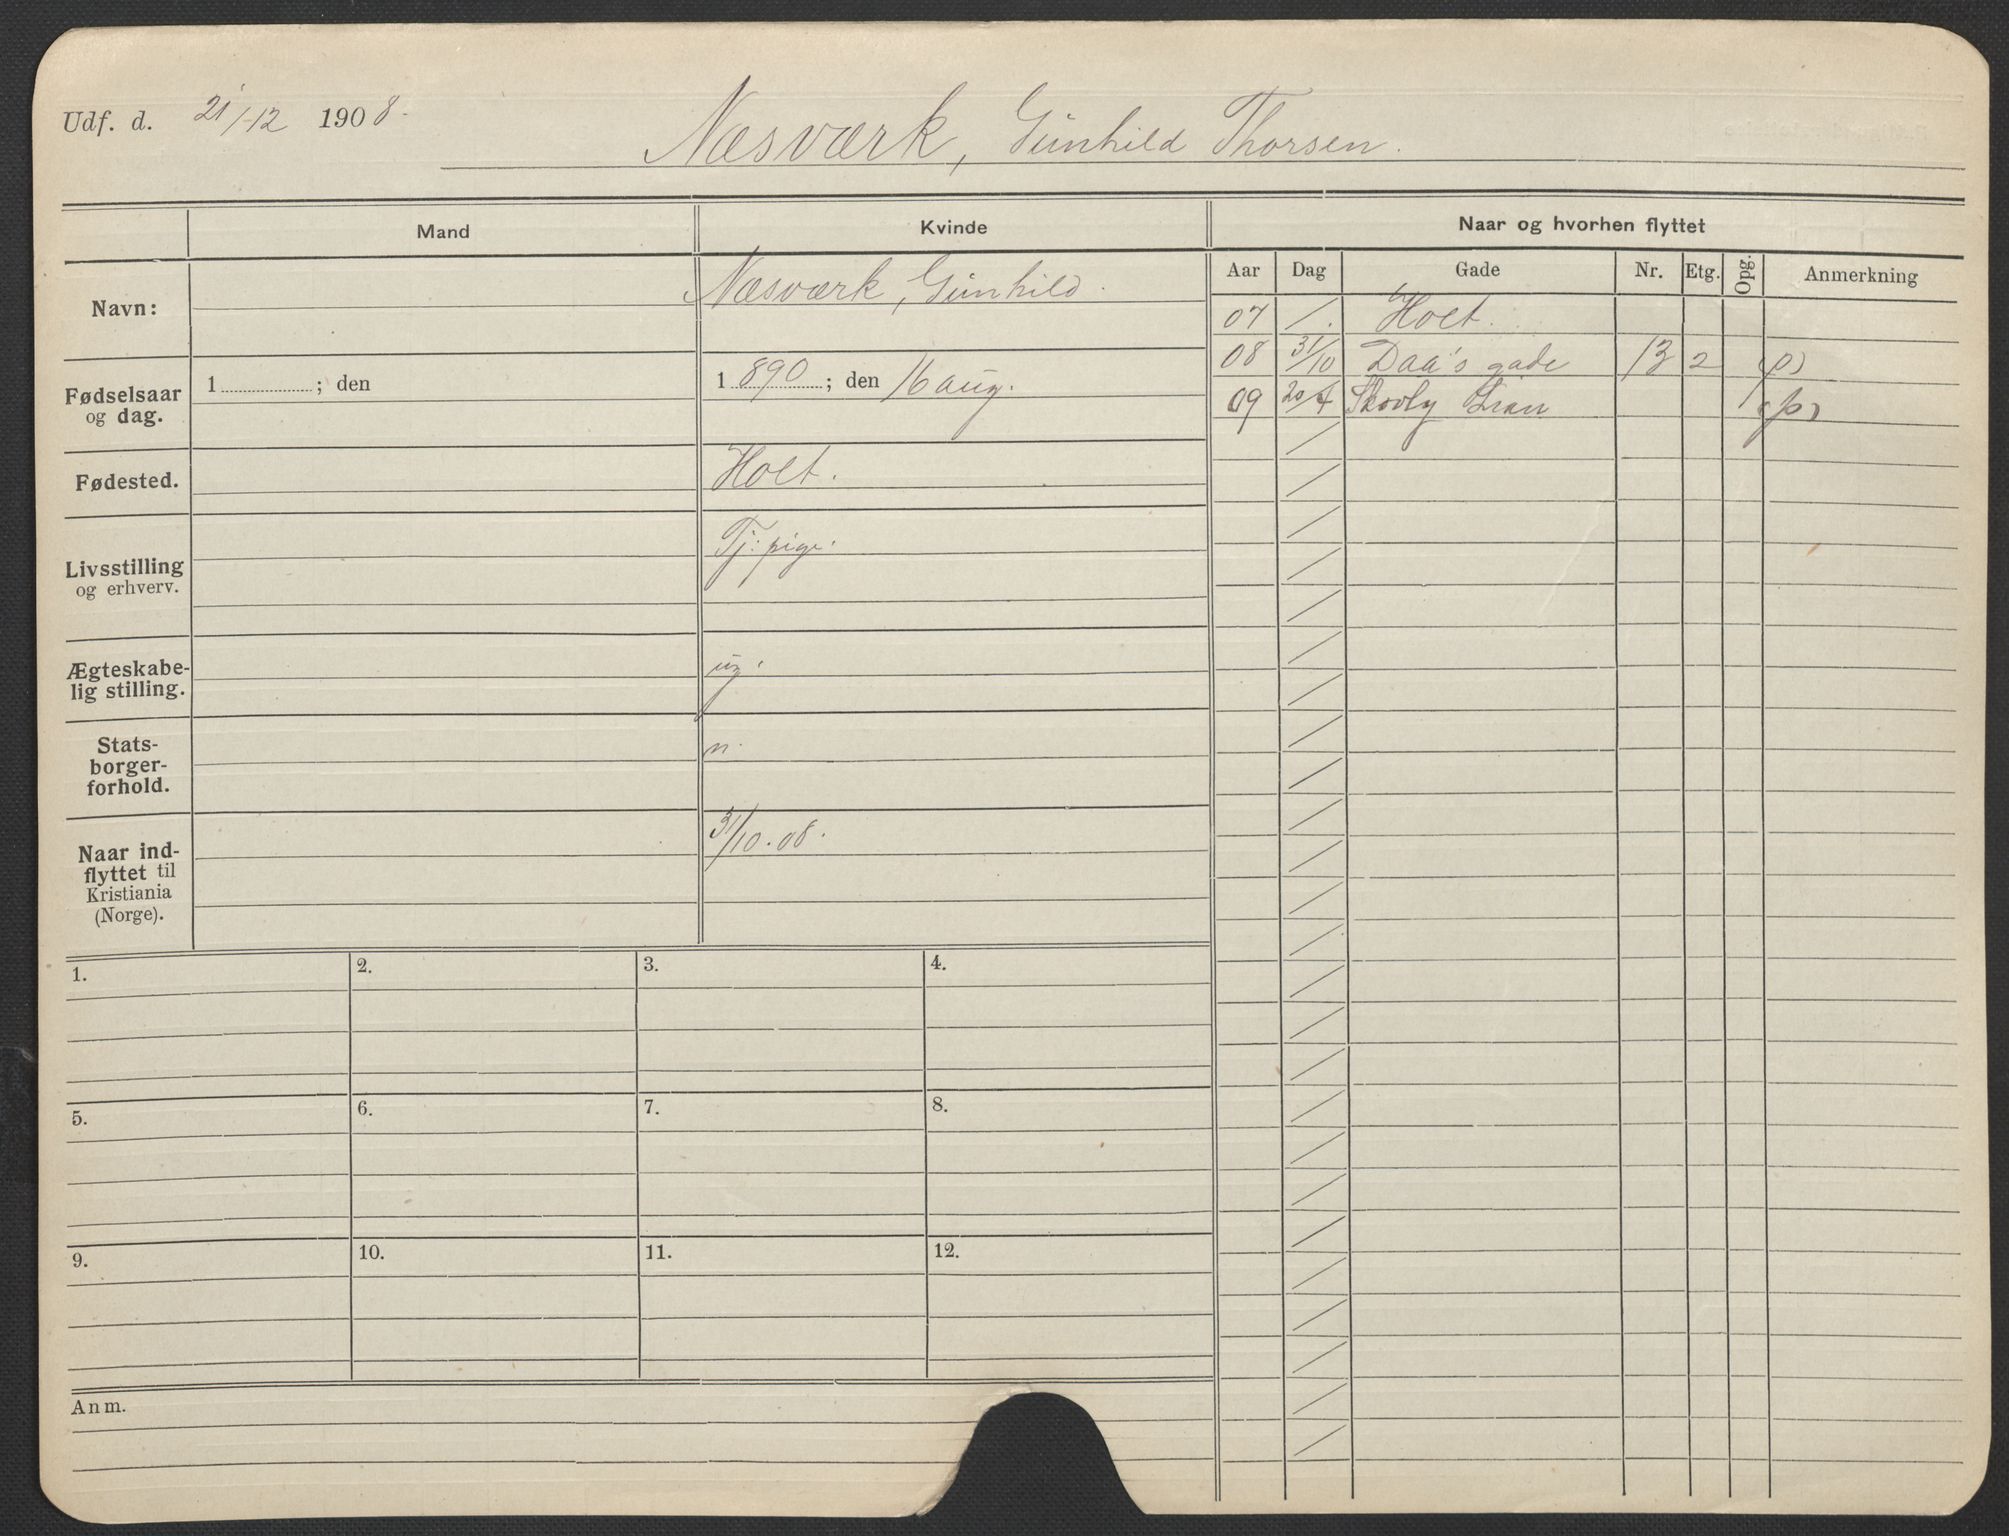 Udf. d. 21/-12 1908.
Næsværk, Gunhild Thorsen.
Mand
Kvinde
Naar og hvorhen flyttet
Aar Dag Gade Nr. Etg. Opg. Anmerkning
Navn:
Næsværk, Gunhild.
Fødselsaar og dag.
1 ; den
1 890 ; den 16 aug.
Fødested.
Holt.
Livsstilling og erhverv.
Tj: pige.
Ægteskabe-
lig stilling.
ug.
Stats-
borger-
forhold.
n.
Naar ind-
flyttet til
Kristiania
(Norge).
31/10.08.
07 / . Holt.
08 31/10 Daa's gade 13 2 (p)
09 20/4 Skovly Lian (p)
1. 2. 3. 4.
5. 6. 7. 8.
9. 10. 11. 12.
Anm.